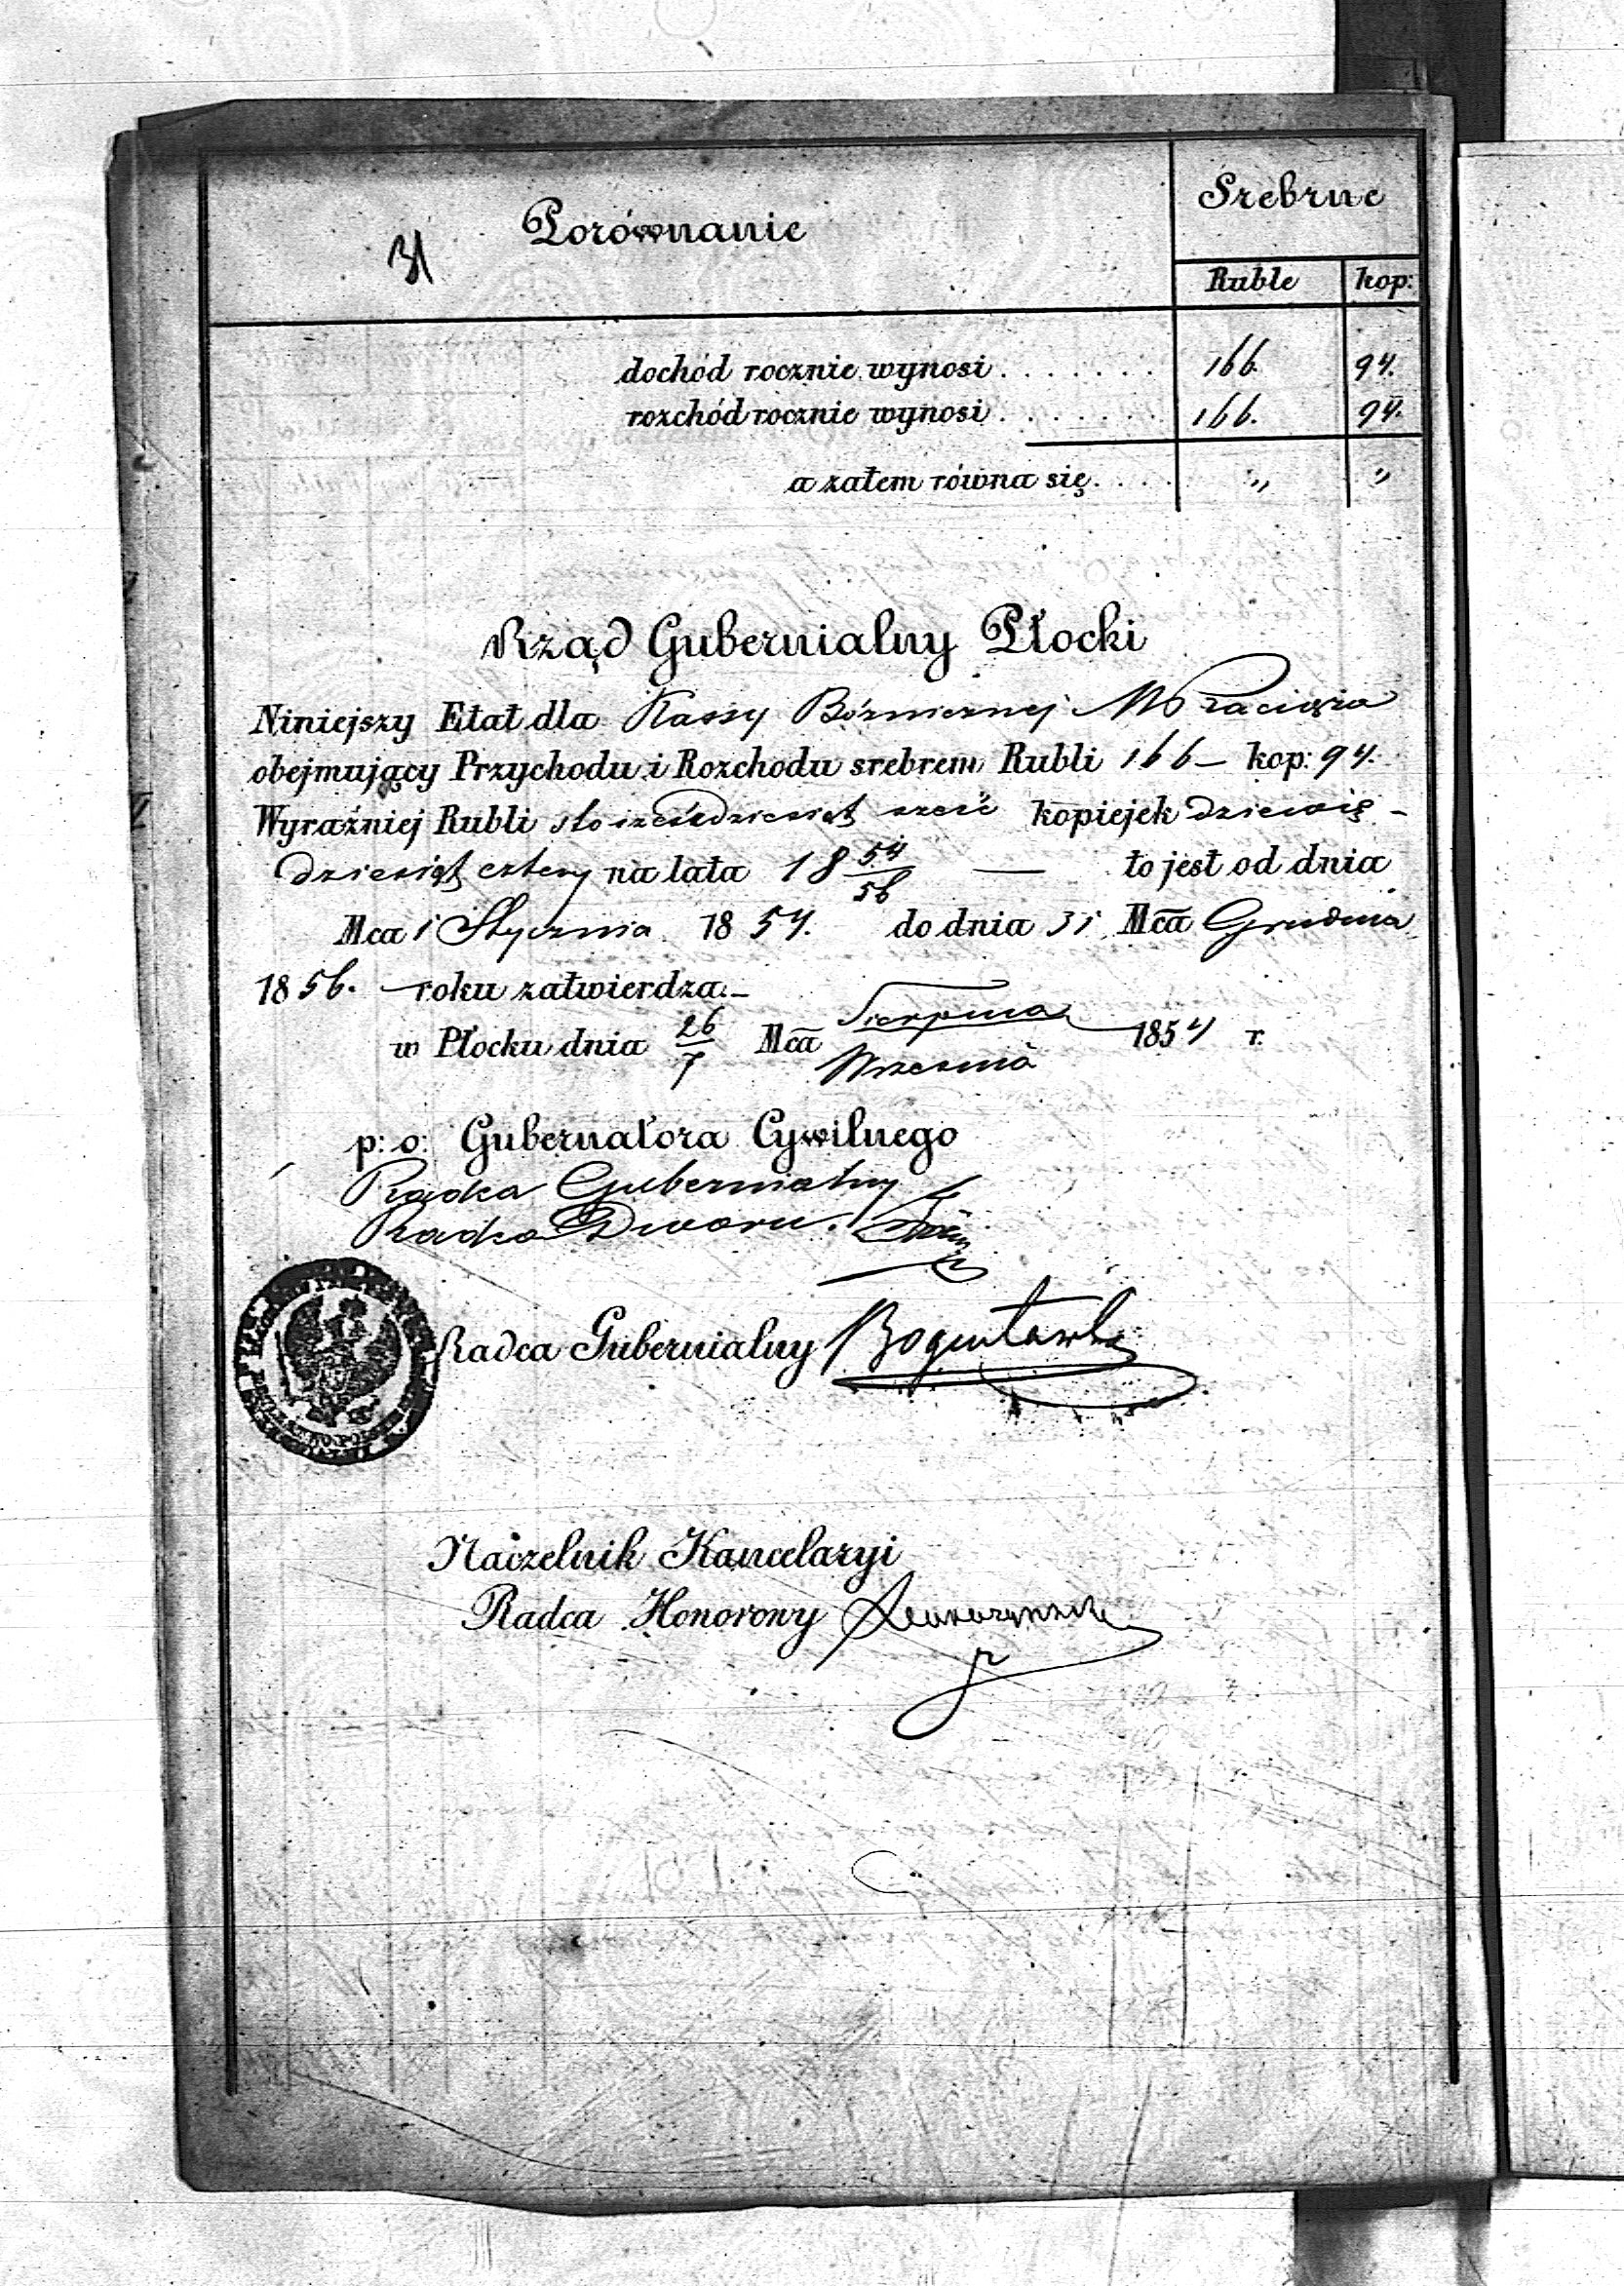 Porównanie
31
Srebrne
Ruble kop:
dochód rocznie wynosi . . . . . . . 166. 94.
rozchód rocznie wynosi . . . . . . . 166. 94.
a zatem równa się. . . . „ „
Rząd Gubernialny Płocki
Niniejszy Etat dla Kassy Bóżniczney M Raciąża
obejmujący Przychodu i Rozchodu srebrem Rubli 166 – kop: 94.
Wyraźniej Rubli sto sześćdziesiąt sześć kopiejek dziewię-
dziesiąt cztery na lata 18 54/56 — to jest od dnia
Mca 1 Stycznia 18 54. do dnia 31 Mca Grudnia
18 56. roku zatwierdza.–
w Płocku dnia 26/7 Mca Sierpnia/Września 1854 r.
p: o: Gubernatora Cywilnego
Radca Gubernialny
Radca Dworu.
Radca Gubernialny Bogusławski
Naczelnik Kancelaryi
Radca Honorowy